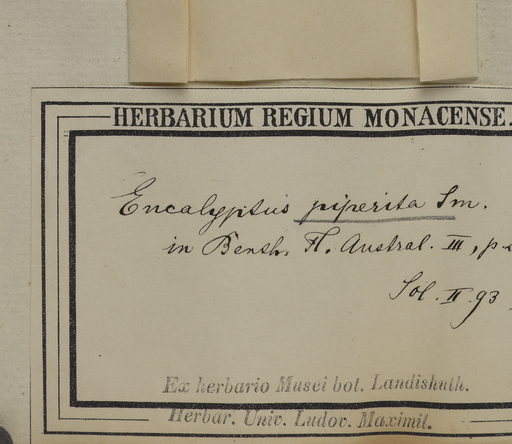 HERBARIUM REGIUM MONACENSE.
Eucalyptus piperita Sm.
in Benth. Fl. Austral. III, p
Sol. II. 93
Ex herbario Musei bot. Landishuth.
Herbar. Univ. Ludov. Maximil.